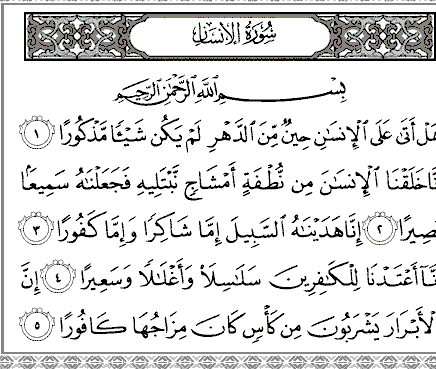 سُورَةُ الإِنسَانِ
بِسْمِ اللَّهِ الرَّحْمَٰنِ الرَّحِيمِ
هَلْ أَتَىٰ عَلَى الْإِنسَانِ حِينٌ مِّنَ الدَّهْرِ لَمْ يَكُن شَيْئًا مَّذْكُورًا ١
نَّا خَلَقْنَا الْإِنسَانَ مِن نُّطْفَةٍ أَمْشَاجٍ نَّبْتَلِيهِ فَجَعَلْنَاهُ سَمِيعًا
صِيرًا ٢ إِنَّا هَدَيْنَاهُ السَّبِيلَ إِمَّا شَاكِرًا وَإِمَّا كَفُورًا ٣
نَّا أَعْتَدْنَا لِلْكَافِرِينَ سَلَاسِلَا۟ وَأَغْلَالًا وَسَعِيرًا ٤ إِنَّ
لْأَبْرَارَ يَشْرَبُونَ مِن كَأْسٍ كَانَ مِزَاجُهَا كَافُورًا ٥